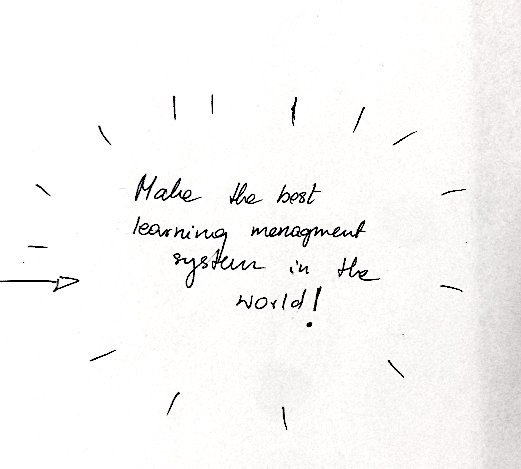 Make the best
learning menagment
system in the
world!